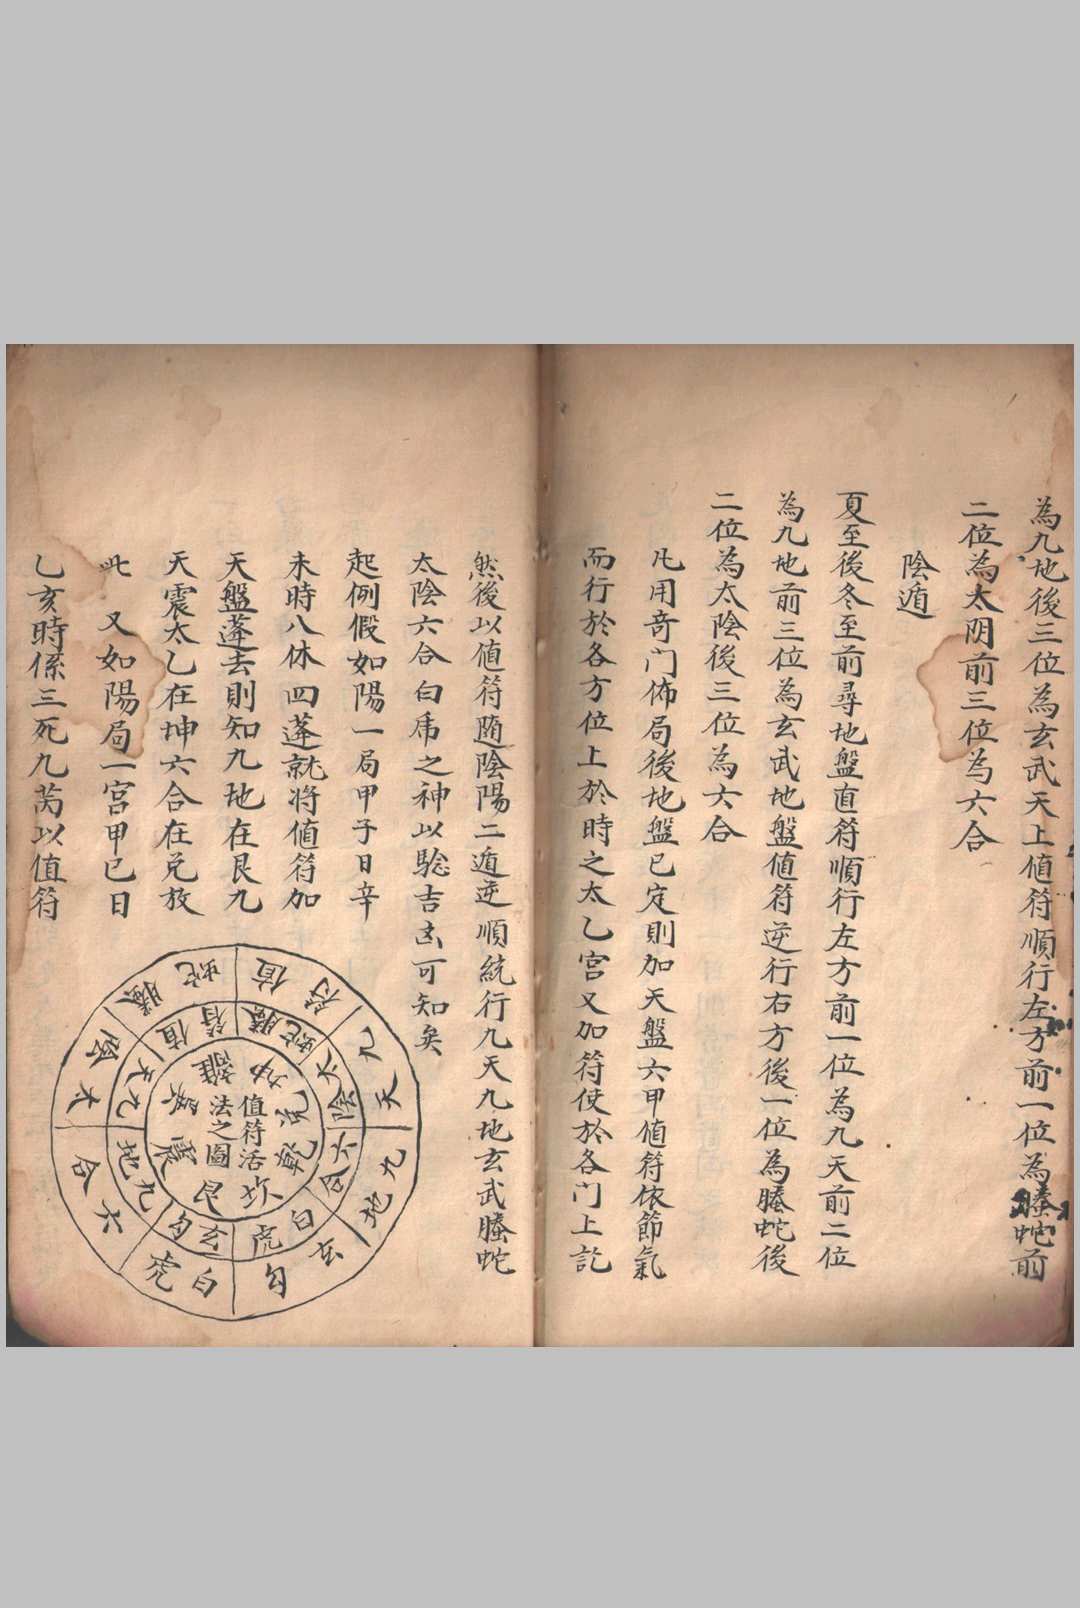 為九地後三位為玄武天上值符順行左方前一位為螣蛇前
二位為太阴前三位為六合
陰遁
夏至後冬至前尋地盤直符順行左方前一位為九天前二位
為九地前三位為玄武地盤值符逆行右方後一位為螣蛇後
二位為太陰後三位為六合
凡用奇门佈局後地盤已定則加天盤六甲值符依節氣
而行於各方位上於時之太乙宮又加符使於各门上訖
然後以值符随陰陽二遁逆順統行九天九地玄武螣蛇
太陰六合白虎之神以騐吉凶可知矣
起例假如陽一局甲子日辛
未時八休四蓬就将值符加
天盤蓬去則知九地在艮九
天震太乙在坤六合在兑放
此 又如陽局一宮甲己日
乙亥時係三死九芮以值符
值符
九天
九地
玄勾
白虎
六合
太陰
螣蛇
螣蛇
太陰
六合
白虎
玄勾
九地
九天
值符
離
坤
兑
乾
坎
艮
震
巽
值符活
法之圖